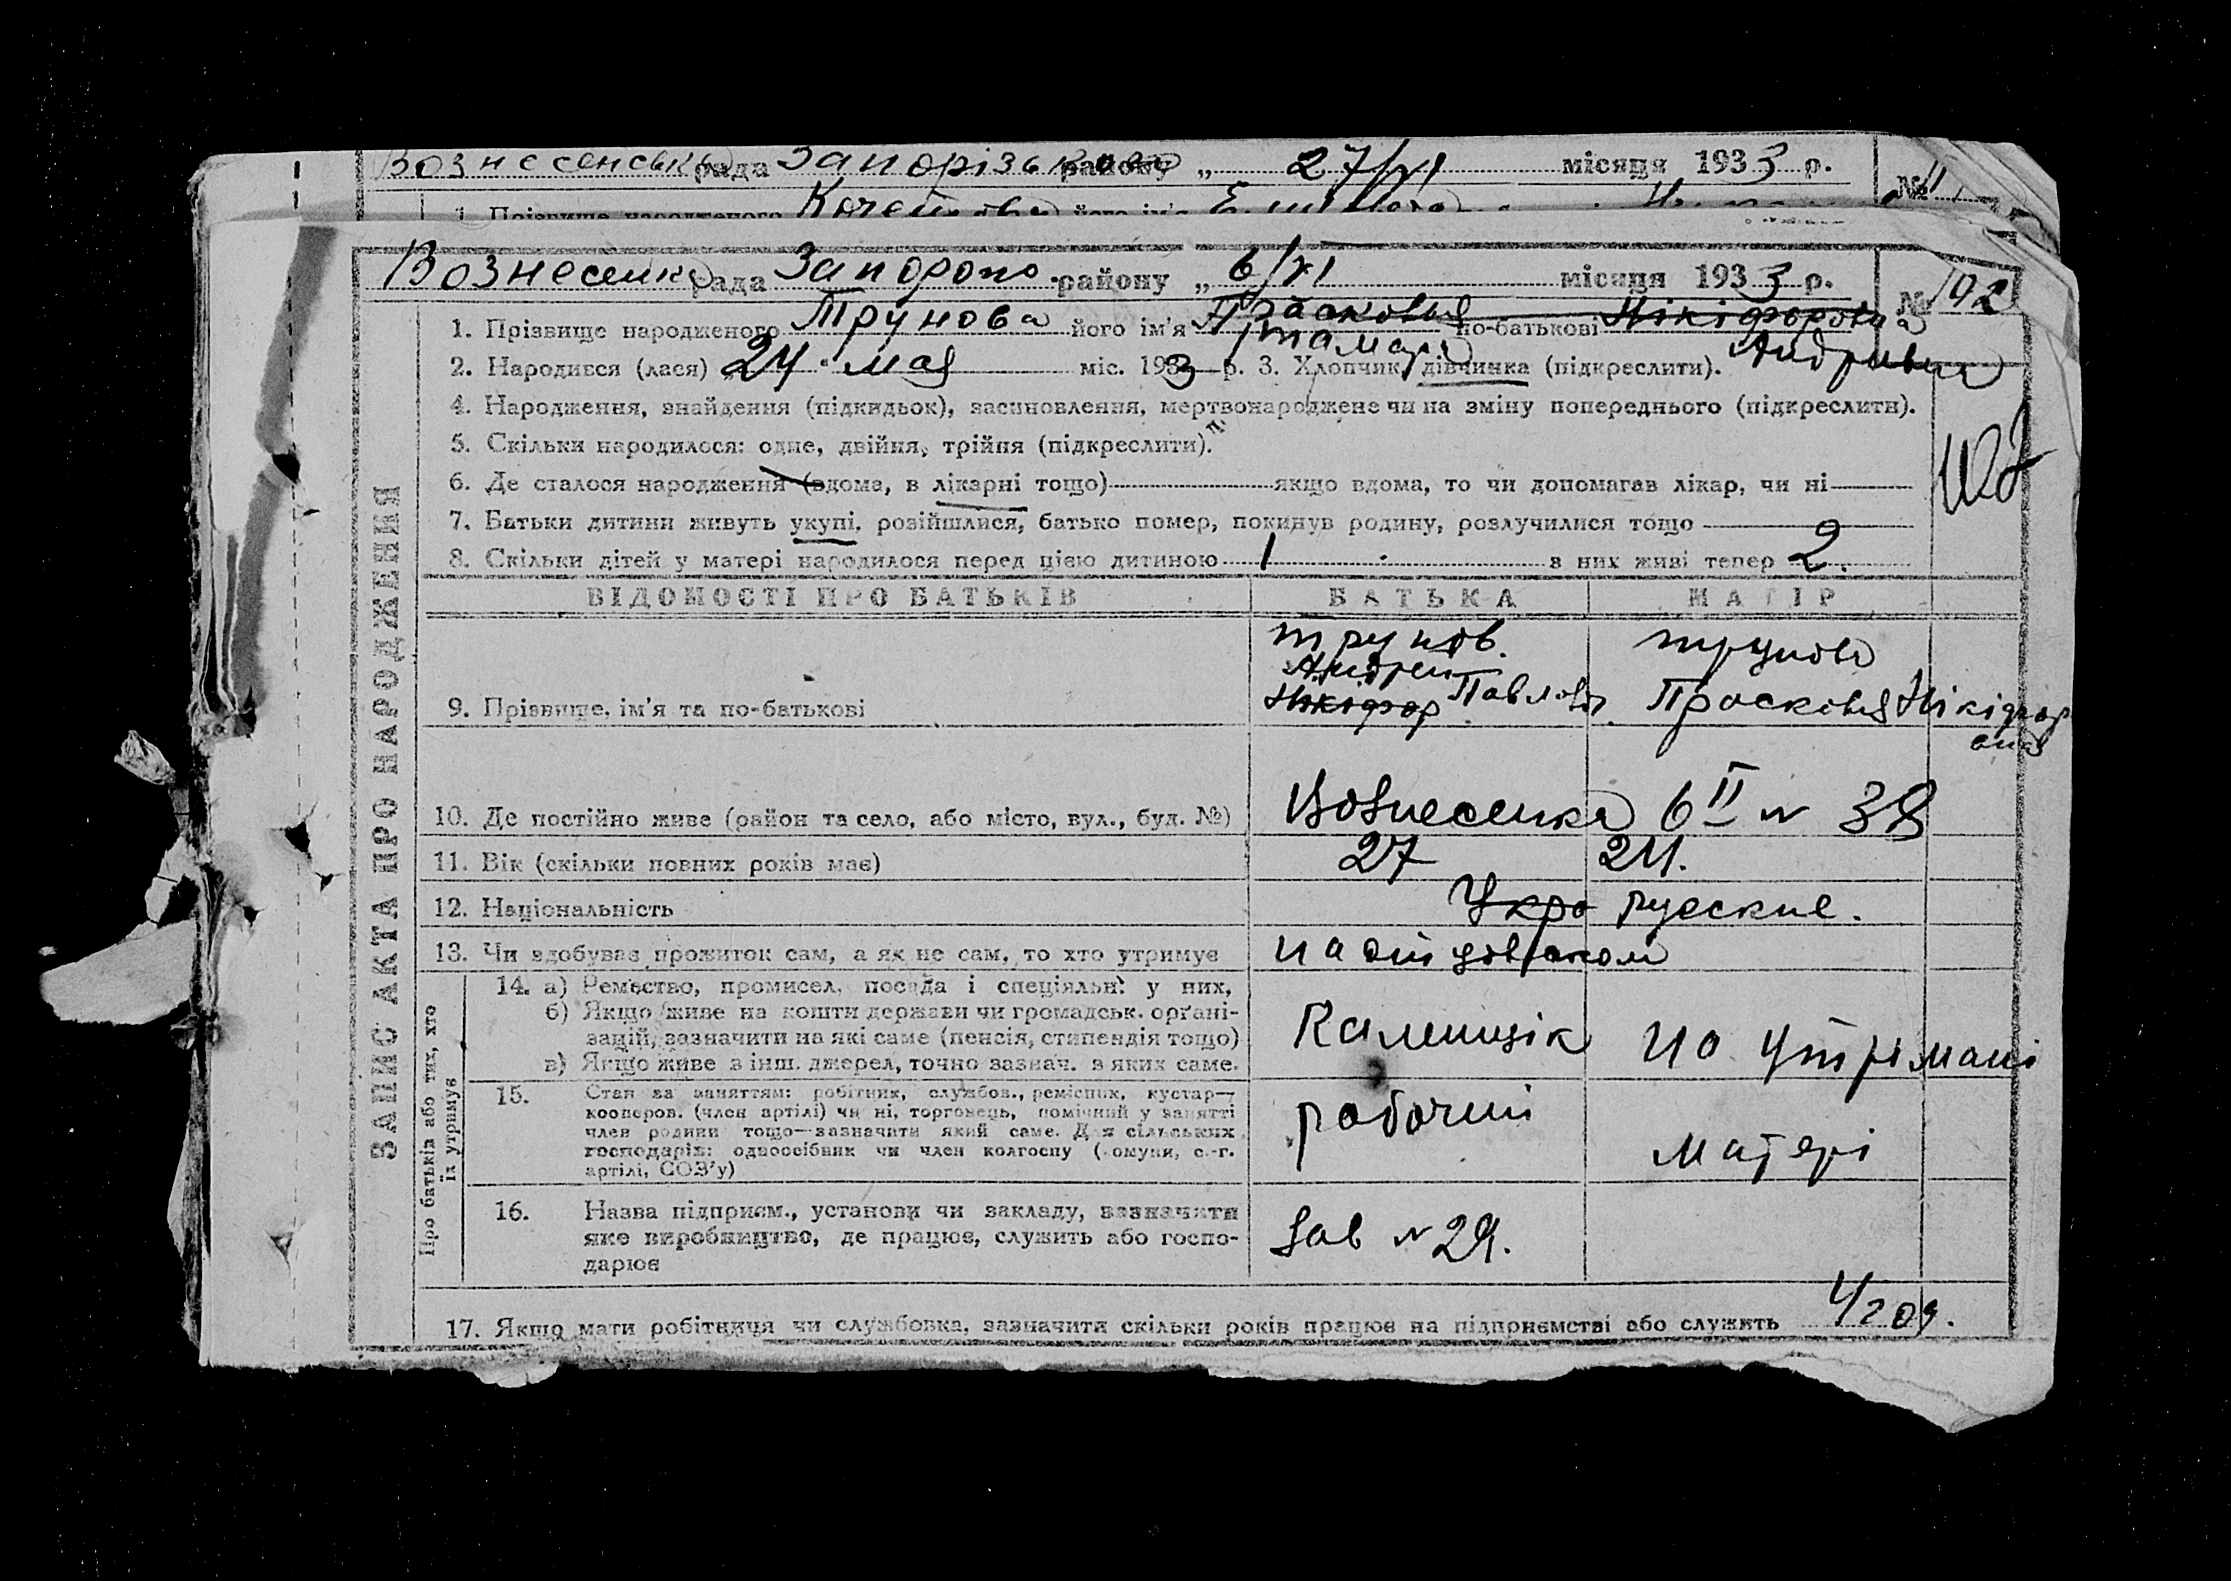 Вознесенська рада Запорізького району „ 27/VI місяця 1933 р. №
1. Прізвище народженого його ім'я
Вознесенка рада Запороко району „ 6/VI місяця 1933 р. № 192
1. Прізвище народженого Трунова його ім'я Прасковья по-батькові Нікіфоровна
Тамара
2. Народився (лася) „24 мая міс. 1933 р. 3. Хлопчик, дівчинка (підкреслити). Андріївна
4. Народження, знайдення (підкидьок), засиновлення, мертвонароджене чи на зміну попереднього (підкреслити).
5. Скільки народилося: одне, двійня, трійня (підкреслити).
6. Де сталося народження (вдома, в лікарні тощо) якщо вдома, то чи допомагав лікар, чи ні
7. Батьки дитини живуть укупі, розійшлися, батько помер, покинув родину, розлучилися тощо
8. Скільки дітей у матері народилося перед цією дитиною 1 з них живі тепер 2.
ВІДОМОСТІ ПРО БАТЬКІВ БАТЬКА МАТІР
Трунов. Трунова
Андрей
9. Прізвище, ім'я та по-батькові Нікіфор Павлов. Прасковья Нікіфор
овна
10. Де постійно живе (район та село, або місто, вул., буд. №) Вознесенка 6 II N 38
11. Вік (скільки повних років має) 27 24.
12. Національність Укра русские.
13. Чи здобуває прожиток сам, а як не сам, то хто утримує
14. а) Ремество, промисел, посада і спеціяльн. у них,
б) Якщо живе на кошти держави чи громадськ. орґані-
зацій, зазначити на які саме (пенсія, стипендія тощо)
в) Якщо живе з інш. джерел, точно зазнач. з яких саме.
Каменщік на утрімані
15. Стан за заняттям: робітник, службов., ремісник, кустар—
кооперов. (член артілі) чи ні, торговець, помічний у занятті
член родини тощо—зазначити який саме. Для сільських
господарів: одноосібник чи член колгоспу (комуни, с.-г.
артілі, СОЗ'у)
рабочий матері
16. Назва підприєм., установи чи закладу, зазначити
яке виробництво, де працює, служить або госпо-
дарює
Зав N 29.
17. Якщо мати робітниця чи службовка, зазначити скільки років працює на підприємстві або служить
ЗАПИС АКТА ПРО НАРОДЖЕННЯ
Про батьків або тих, хто
їх утримує